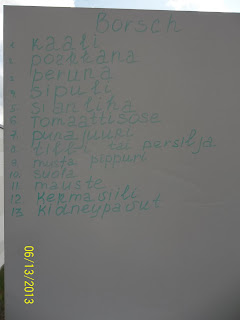 Borsch
1. kaali
2. porkkana
3. peruna
4. sipuli
5. sianliha
6. tomaattisose
7. punajuuri
8. tilli tai persilja
9. musta pippuri
10. suola
11. mauste
12. kermaviili
13. kidneypavut
06/13/2013